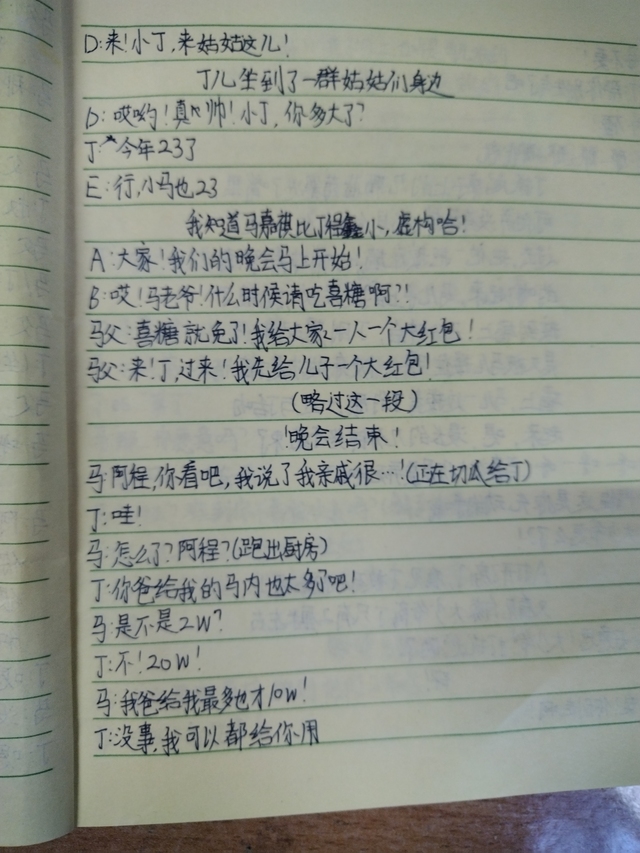 D:来!小丁,来姑姑这儿!
丁儿坐到了一群姑姑们身边
D:哎哟!真帅!小丁,你多大了?
丁:今年23了
E:行,小马也23
我知道马嘉祺比丁程鑫小,虚构哈!
A:大家!我们的晚会马上开始!
B:哎!马老爷!什么时候请吃喜糖啊?!
马父:喜糖就免了!我给大家一人一个大红包!
马父:来!丁,过来!我先给儿子一个大红包!
(略过这一段)
晚会结束!
马:阿程,你看吧,我说了我亲戚很…!(正在切瓜给丁)
丁:哇!
马:怎么了?阿程?(跑出厨房)
丁:你爸给我的马内也太多了吧!
马:是不是2W?
丁:不!20W!
马:我爸给我最多也才10W!
丁:没事,我可以都给你用